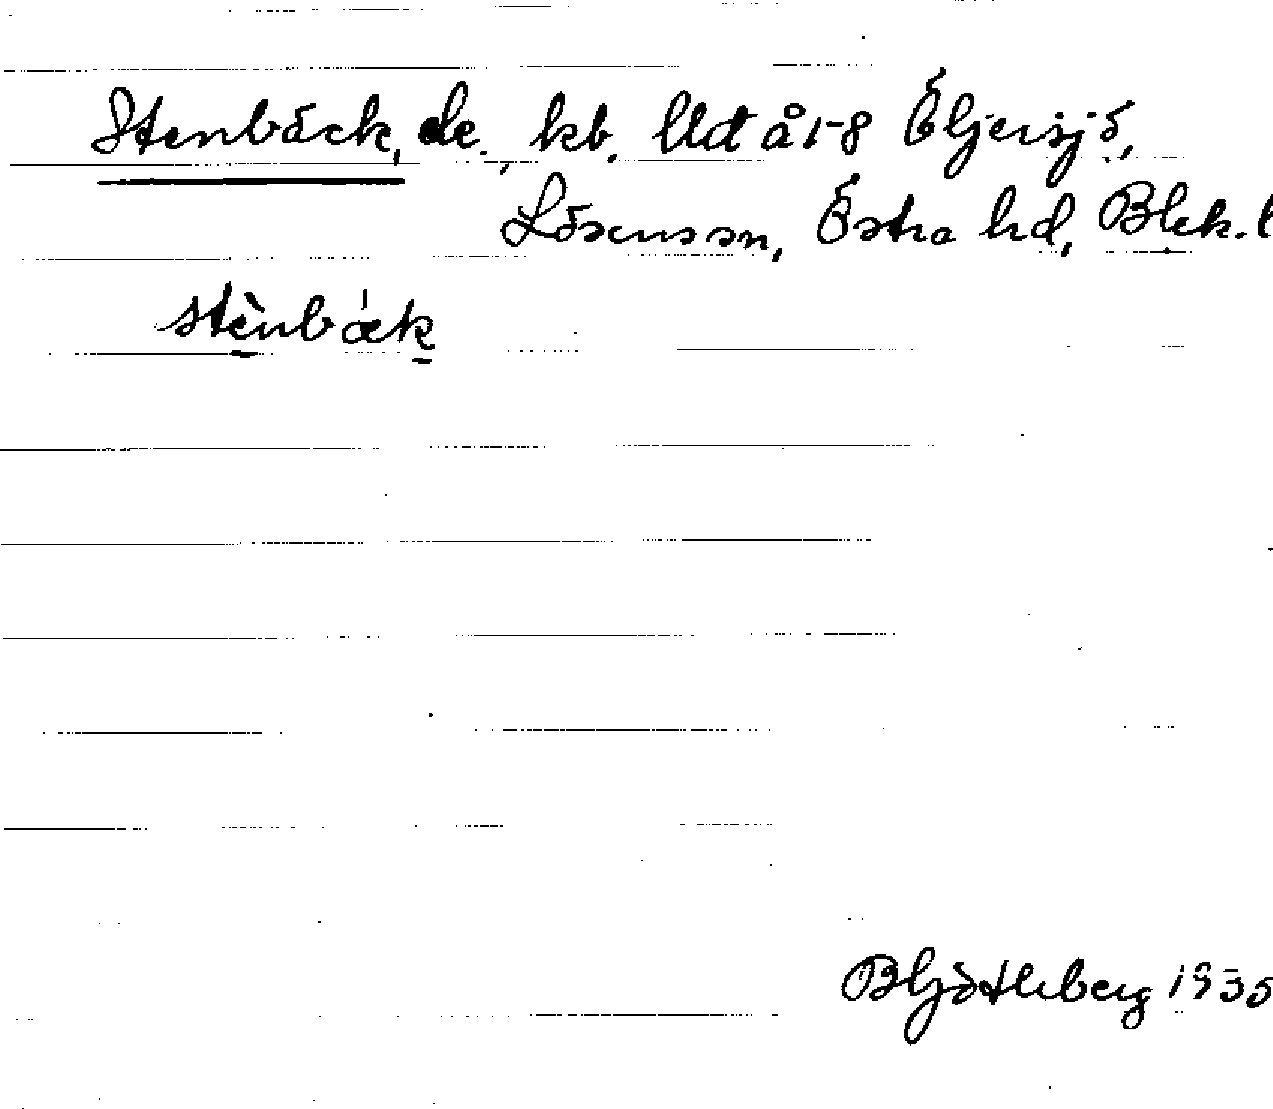 Stenbäck, de., kb. Utl å 1-8 Öljersjö,
Lösens sn, Östra hd, Blek. l
stènbáck
B Ljöstberg 1935